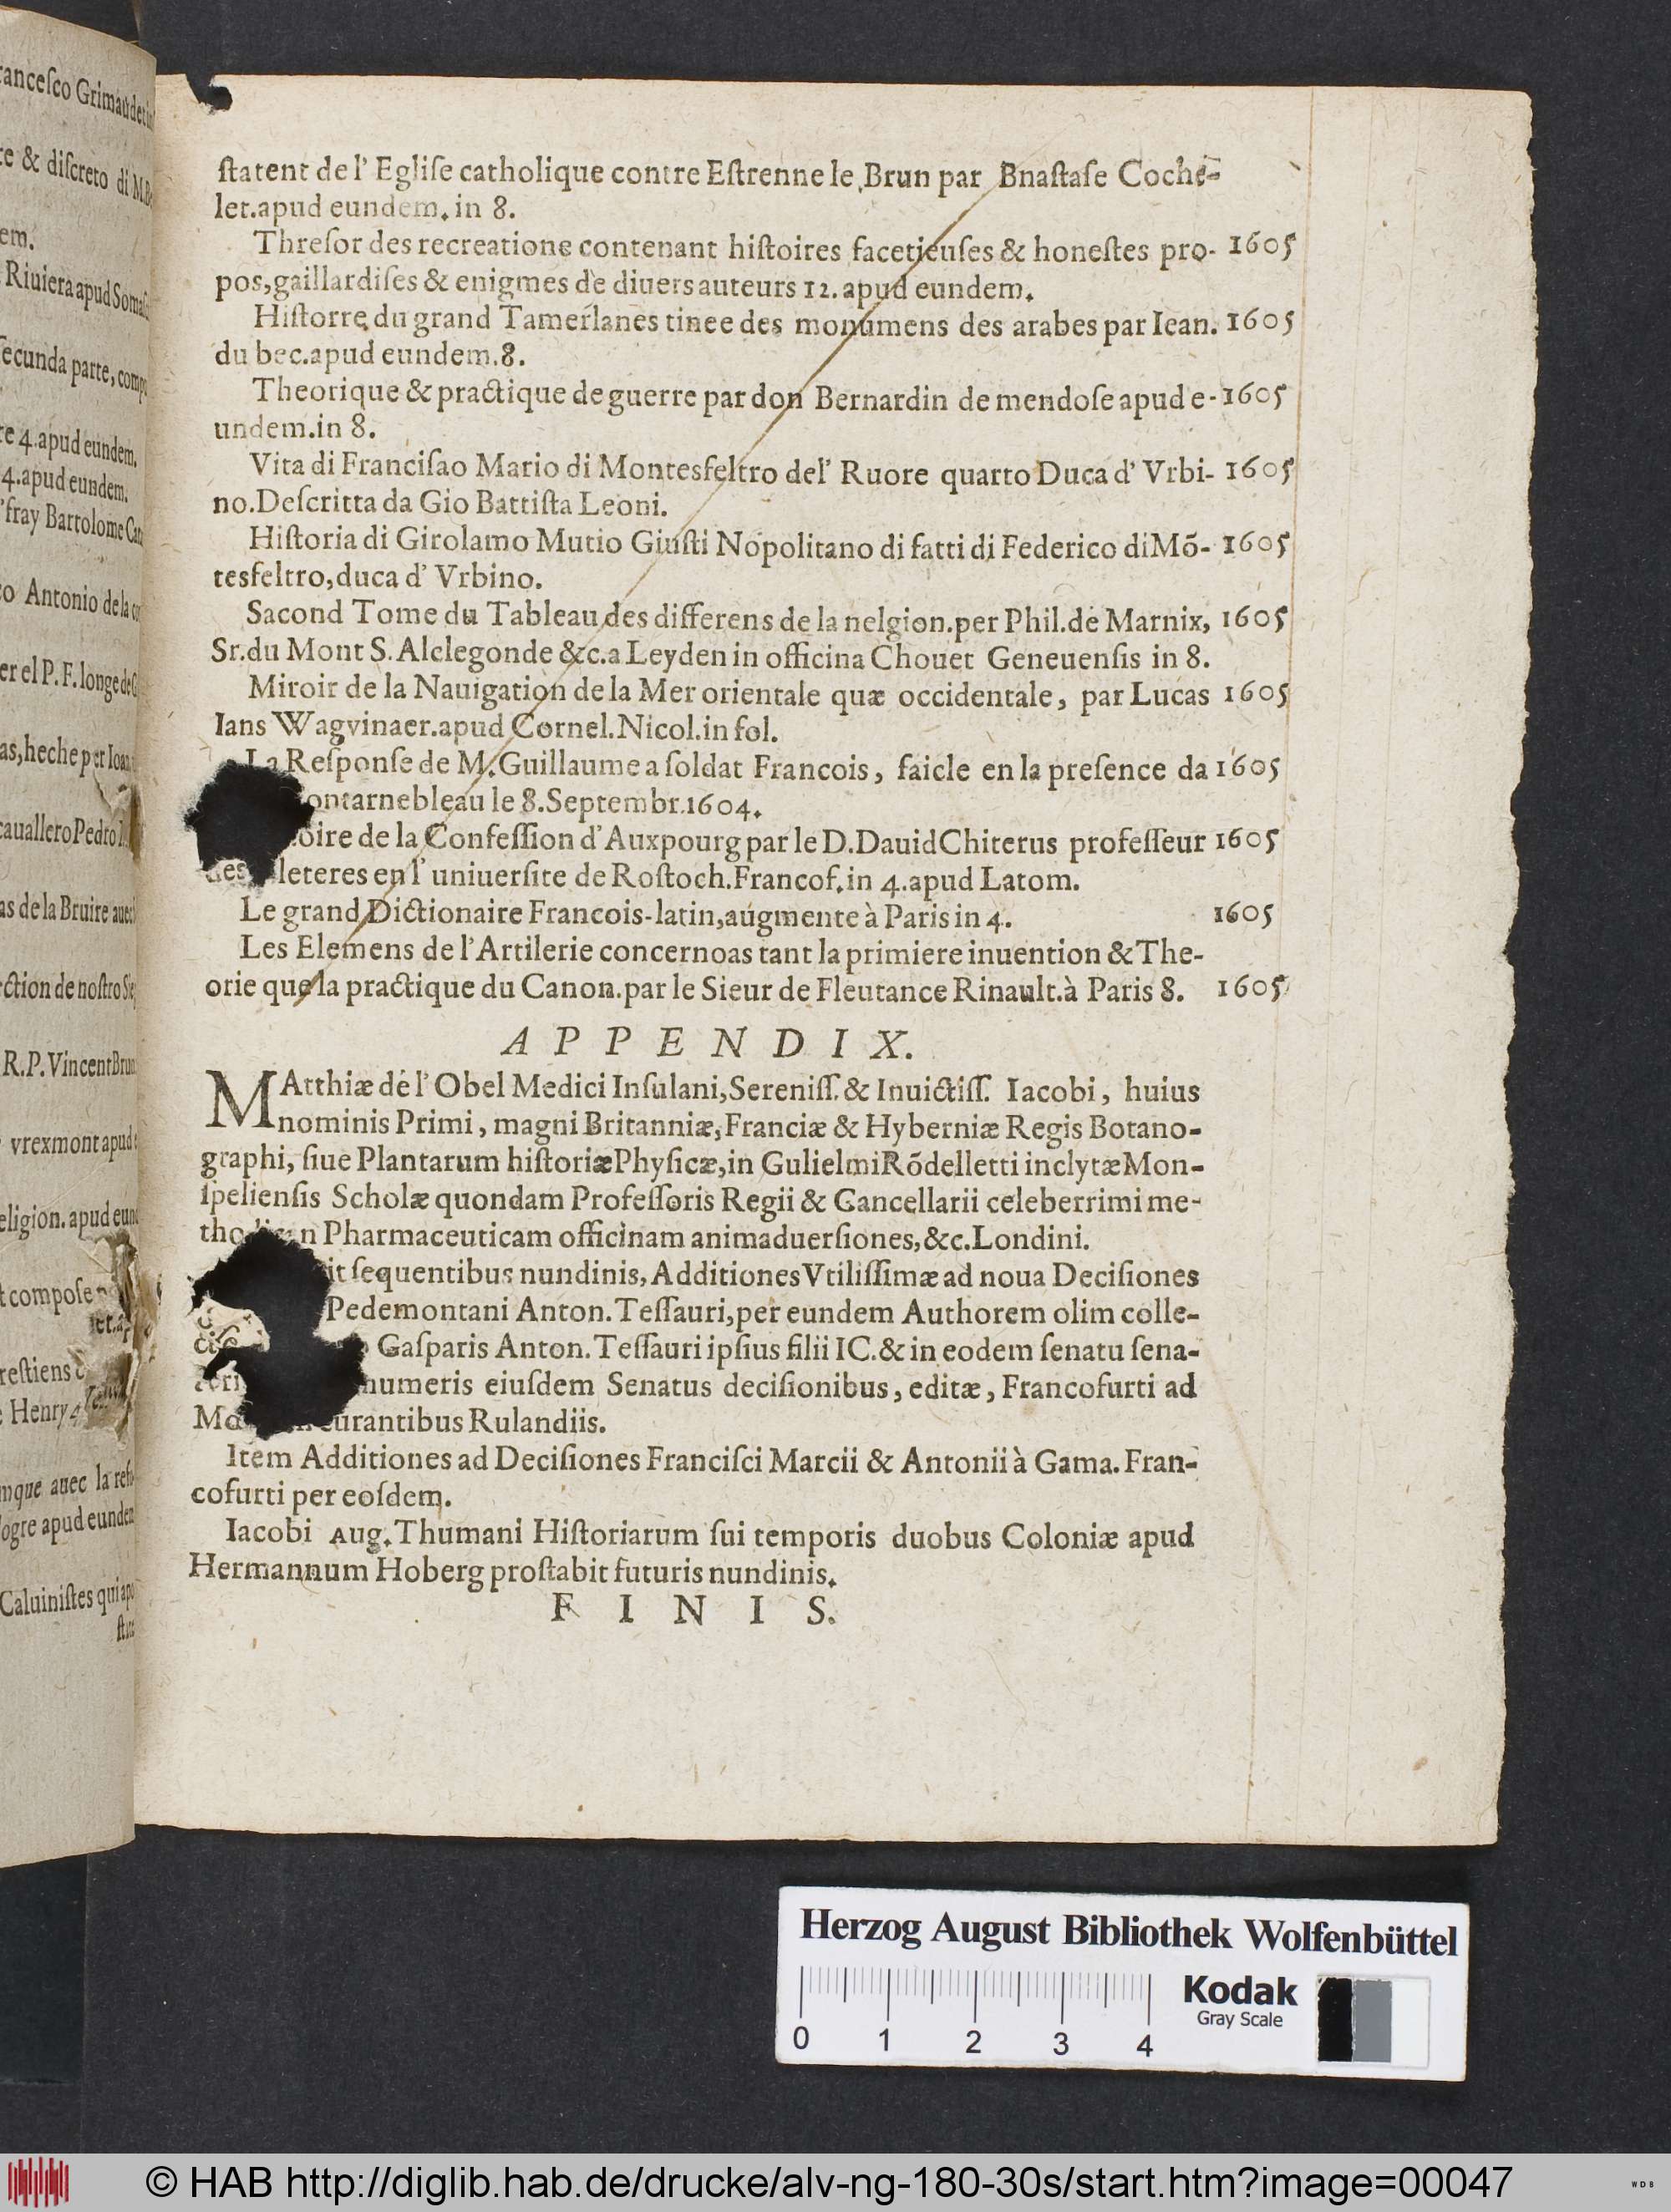 ancesco Grimaudet in
te & diſcreto di M. Be
em.
Riuiera apud Somaſ
ſecunda parte, comp
te 4. apud eundem.
4. apud eundem.
fray Bartolome Car
co Antonio de la co
er el P. F. longe de G
as, heche per Ioan
cauallero Pedro
as de la Bruire auec
ction de noſtro Sie
R. P. Vincent Brun
vrexmont apud e
eligion. apud eund
t compoſe
et. ap
reſtiens
Henry 4
mque auec la refu
ogre apud eundem
Caluiniſtes qui apo
ſtat
ſtatent de l' Egliſe catholique contre Eſtrenne le Brun par Bnaſtaſe Coche-
let. apud eundem. in 8.
Threſor des recreatione contenant hiſtoires facetieuſes & honeſtes pro- 1605
pos, gaillardiſes & enigmes de diuers auteurs 12. apud eundem.
Hiſtorre du grand Tamerlanes tinee des monumens des arabes par Iean. 1605
du bec. apud eundem. 8.
Theorique & practique de guerre par don Bernardin de mendoſe apud e- 1605
undem. in 8.
Vita di Franciſao Mario di Montesfeltro del' Ruore quarto Duca d' Vrbi- 1605
no. Deſcritta da Gio Battiſta Leoni.
Hiſtoria di Girolamo Mutio Giuſti Nopolitano di fatti di Federico di Mõ- 1605
tesfeltro, duca d' Vrbino.
Sacond Tome du Tableau des differens de la nelgion. per Phil. de Marnix, 1605
Sr. du Mont S. Alclegonde &c. a Leyden in officina Chouet Geneuenſis in 8.
Miroir de la Nauigation de la Mer orientale quæ occidentale, par Lucas 1605
Ians Wagvinaer. apud Cornel. Nicol. in fol.
La Reſponſe de M. Guillaume a ſoldat Francois, faicle en la preſence da 1605
ontarnebleau le 8. Septembr. 1604.
oire de la Confeſſion d' Auxpourg par le D. Dauid Chiterus profeſſeur 1605
des leteres en l' uniuerſite de Roſtoch. Francof. in 4. apud Latom.
Le grand Dictionaire Francois-latin, augmente à Paris in 4. 1605
Les Elemens de l' Artilerie concernoas tant la primiere inuention & The-
orie que la practique du Canon. par le Sieur de Fleutance Rinault. à Paris 8. 1605
APPENDIX.
MAtthiæ de l' Obel Medici Inſulani, Sereniſſ. & Inuictiſſ. Iacobi, huius
nominis Primi, magni Britanniæ, Franciæ & Hyberniæ Regis Botano-
graphi, ſiue Plantarum hiſtoriæ Phyſicæ, in Gulielmi Rõdelletti inclytæ Mon-
ſpelienſis Scholæ quondam Profeſſoris Regii & Cancellarii celeberrimi me-
thodicam Pharmaceuticam officinam animaduerſiones, &c. Londini.
it ſequentibus nundinis, Additiones Vtiliſſimæ ad noua Deciſiones
Pedemontani Anton. Teſſauri, per eundem Authorem olim colle-
Gaſparis Anton. Teſſauri ipſius filii IC. & in eodem ſenatu ſena-
numeris eiuſdem Senatus deciſionibus, editæ, Francofurti ad
Mo urantibus Rulandiis.
Item Additiones ad Deciſiones Franciſci Marcii & Antonii à Gama. Fran-
cofurti per eoſdem.
Iacobi Aug. Thumani Hiſtoriarum ſui temporis duobus Coloniæ apud
Hermannum Hoberg proſtabit futuris nundinis.
FINIS.
Herzog August Bibliothek Wolfenbüttel
Kodak
Gray Scale
0 1 2 3 4
© HAB http://diglib.hab.de/drucke/alv-ng-180-30s/start.htm?image=00047
WDB